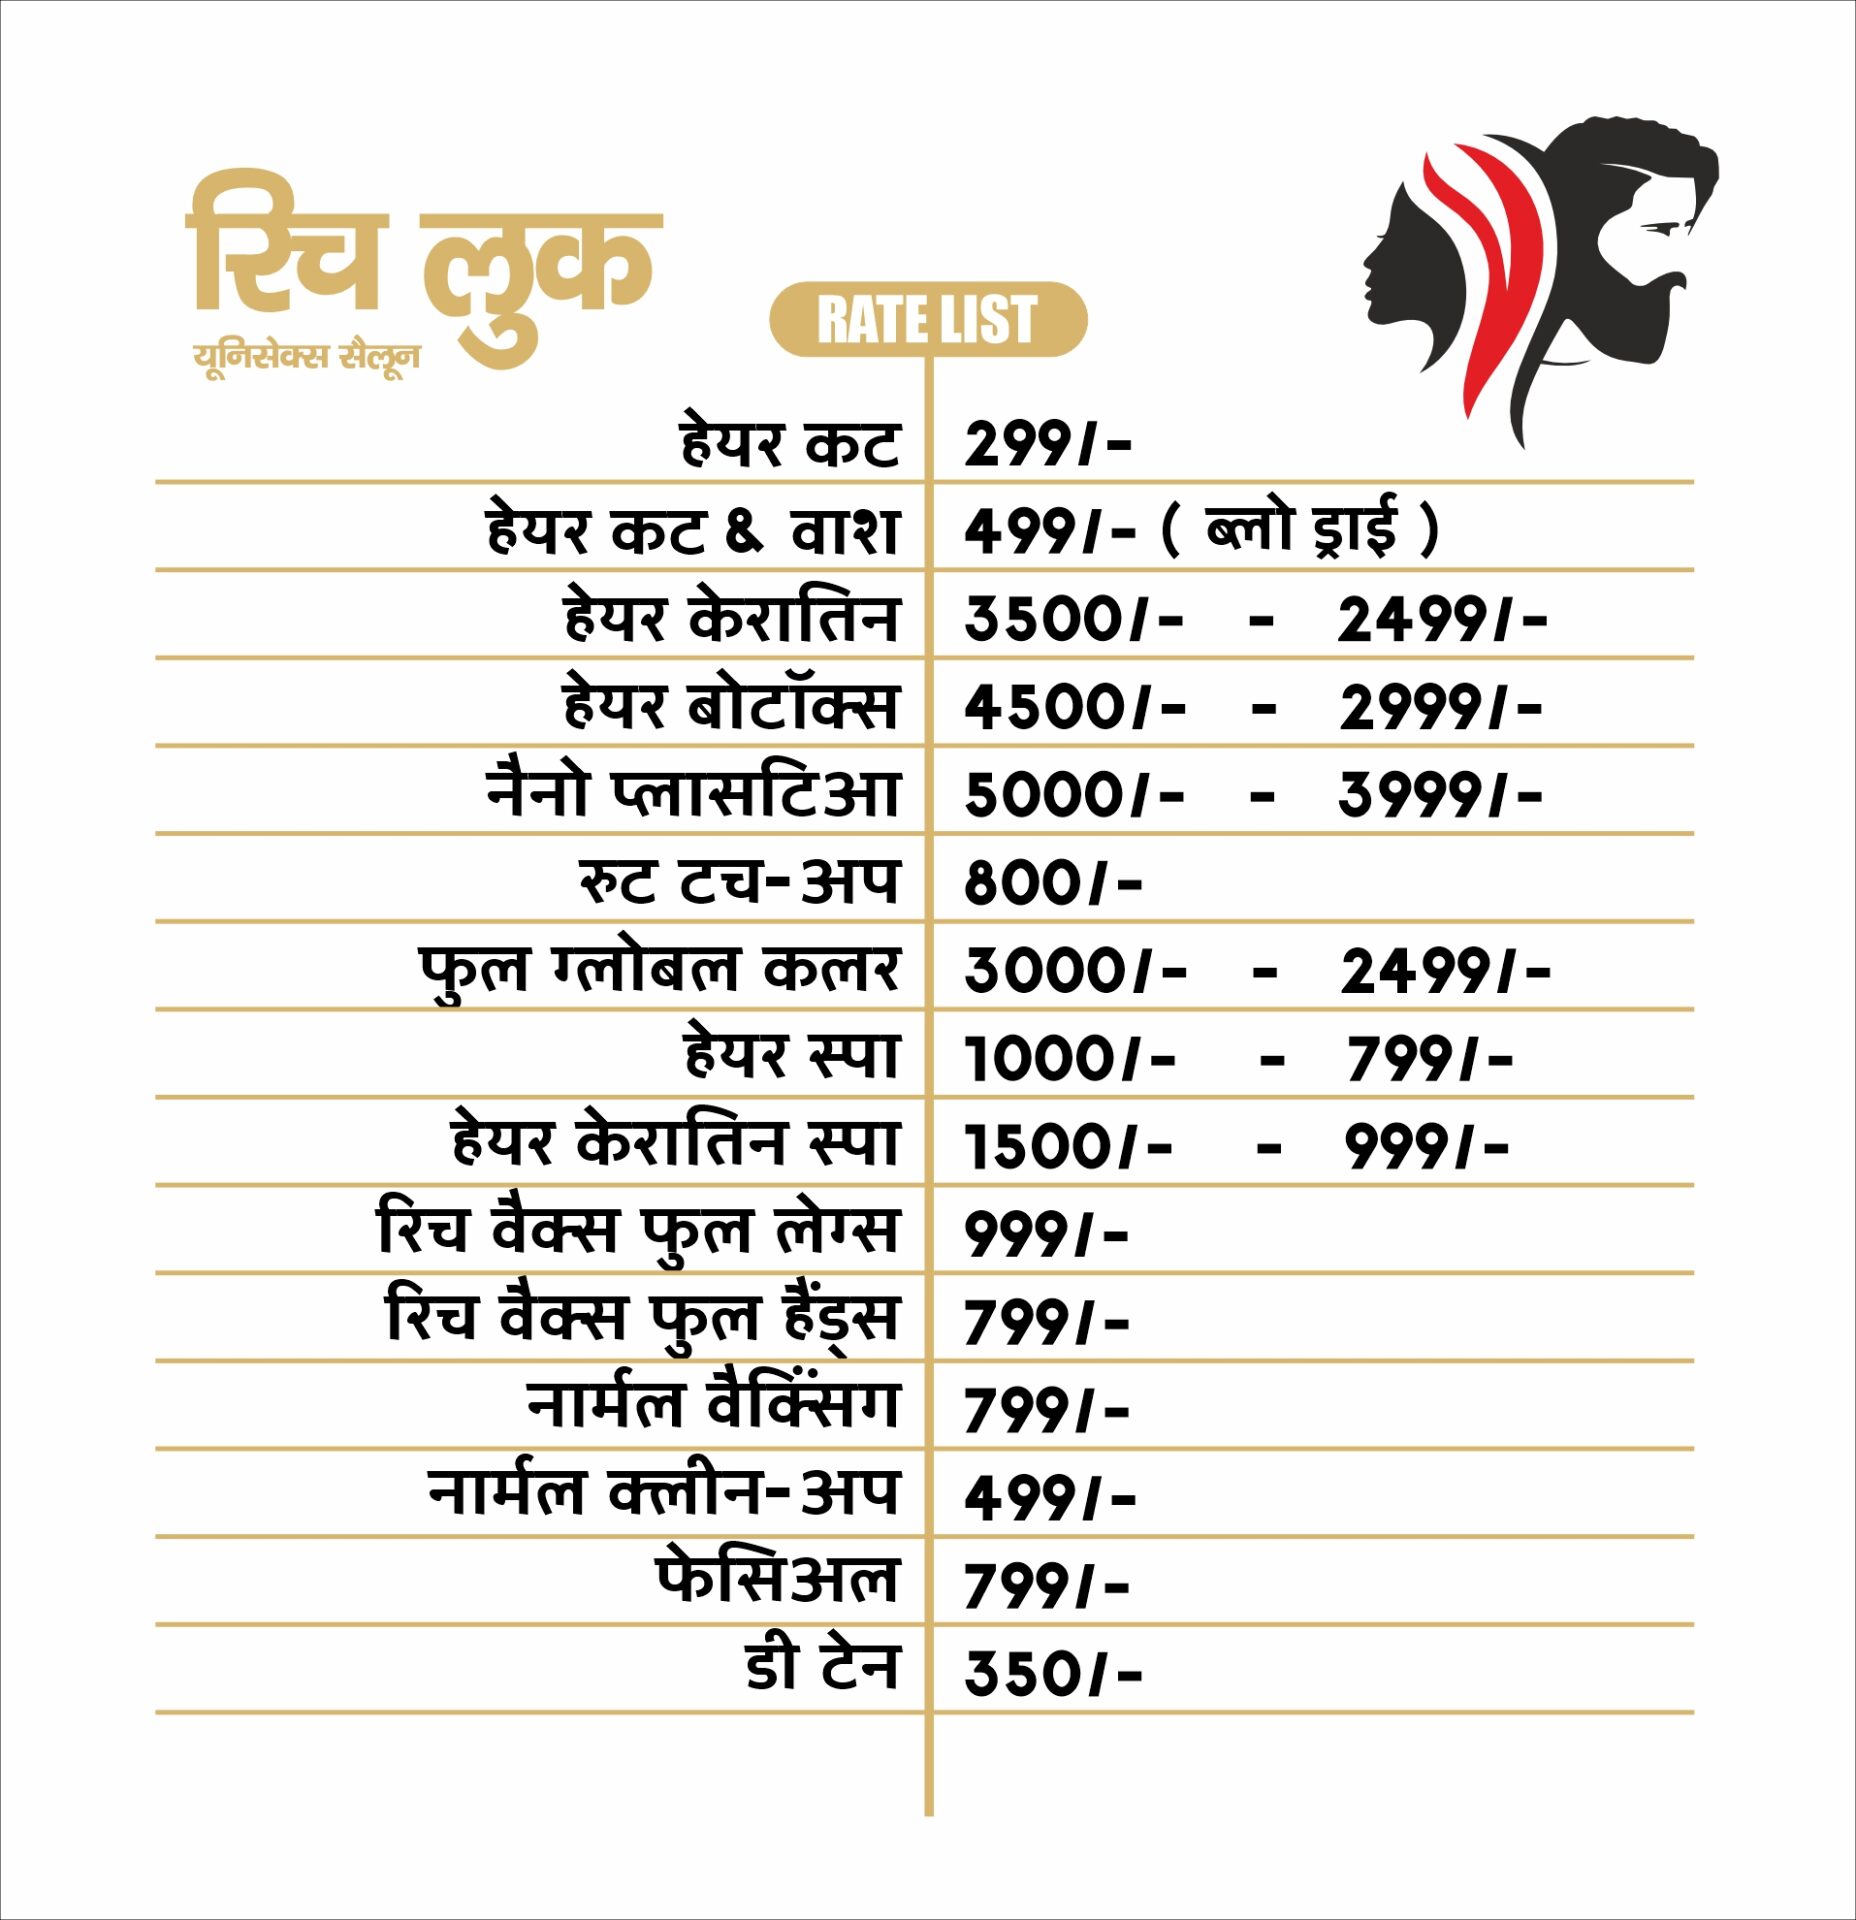 रिच लुक
यूनिसेक्स सैलून
RATE LIST
हेयर कट 299/-
हेयर कट & वाश 499/- ( ब्लो ड्राई )
हेयर केरातिन 3500/- - 2499/-
हेयर बोटॉक्स 4500/- - 2999/-
नैनो प्लासटिआ 5000/- - 3999/-
रुट टच-अप 800/-
फुल ग्लोबल कलर 3000/- - 2499/-
हेयर स्पा 1000/- - 799/-
हेयर केरातिन स्पा 1500/- - 999/-
रिच वैक्स फुल लेग्स 999/-
रिच वैक्स फुल हैंड्स 799/-
नार्मल वैक्सिंग 799/-
नार्मल क्लीन-अप 499/-
फेसिअल 799/-
डी टेन 350/-